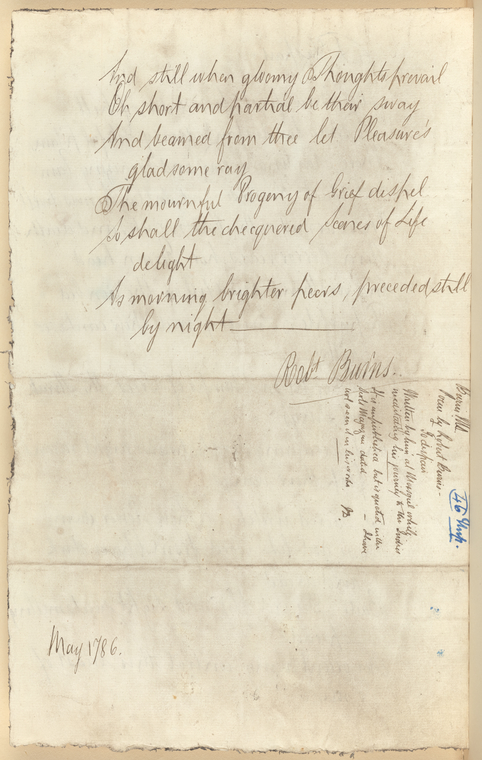 And still when gloomy Thoughts prevail
Oh short and partial be their sway
And beamed from thee let Pleasure's
gladsome ray
The mournful Progeny of Grief dispel
So shall the checquered Scenes of Life
delight
As morning brighter peers, preceded still
by night
Robt Burns.
Burns Md.
Poem by Robert Burns -
To despair
Written by him at Mossgiel whilst
meditating his journey to the Indies
It is unpublished but is quoted in the
Scots Magazine dated - I have
not seen it in his works JB.
May 1786.